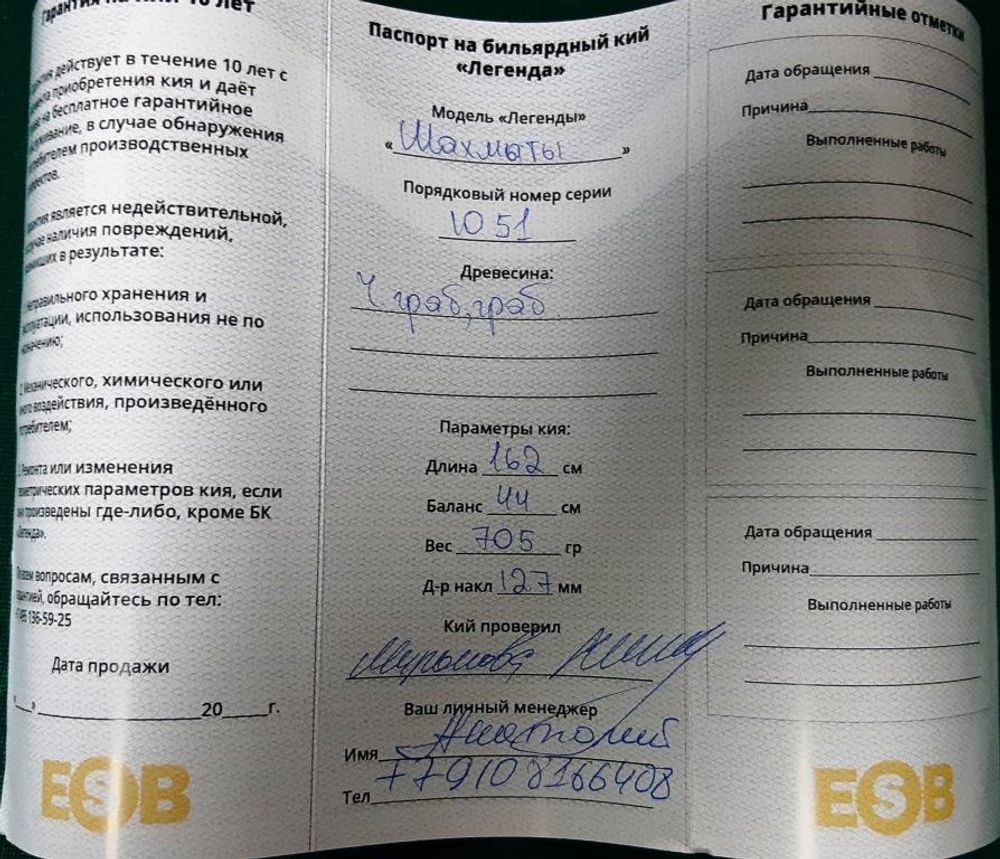 Гарантия на кии 10 лет
действует в течение 10 лет с
приобретения кия и даёт
на бесплатное гарантийное
в случае обнаружения
производственных
является недействительной,
наличия повреждений,
в результате:
хранения и
использования не по
2. Механического, химического или
воздействия, произведённого
потребителем;
Ремонта или изменения
параметров кия, если
произведены где-либо, кроме БК
«Легенда».
вопросам, связанным с
обращайтесь по тел:
136-59-25
Дата продажи
«__»______________20____г.
ESB
Паспорт на бильярдный кий
«Легенда»
Модель «Легенды»
«Шахматы»
Порядковый номер серии
1051
Древесина:
Ч граб, граб
Параметры кия:
Длина 162 см
Баланс 44 см
Вес 705 гр
Д-р накл 127 мм
Кий проверил
Миронова
Ваш личный менеджер
Имя Анатолий
Тел +79108166408
Гарантийные отметки
Дата обращения
Причина
Выполненные работы
Дата обращения
Причина
Выполненные работы
Дата обращения
Причина
Выполненные работы
ESB